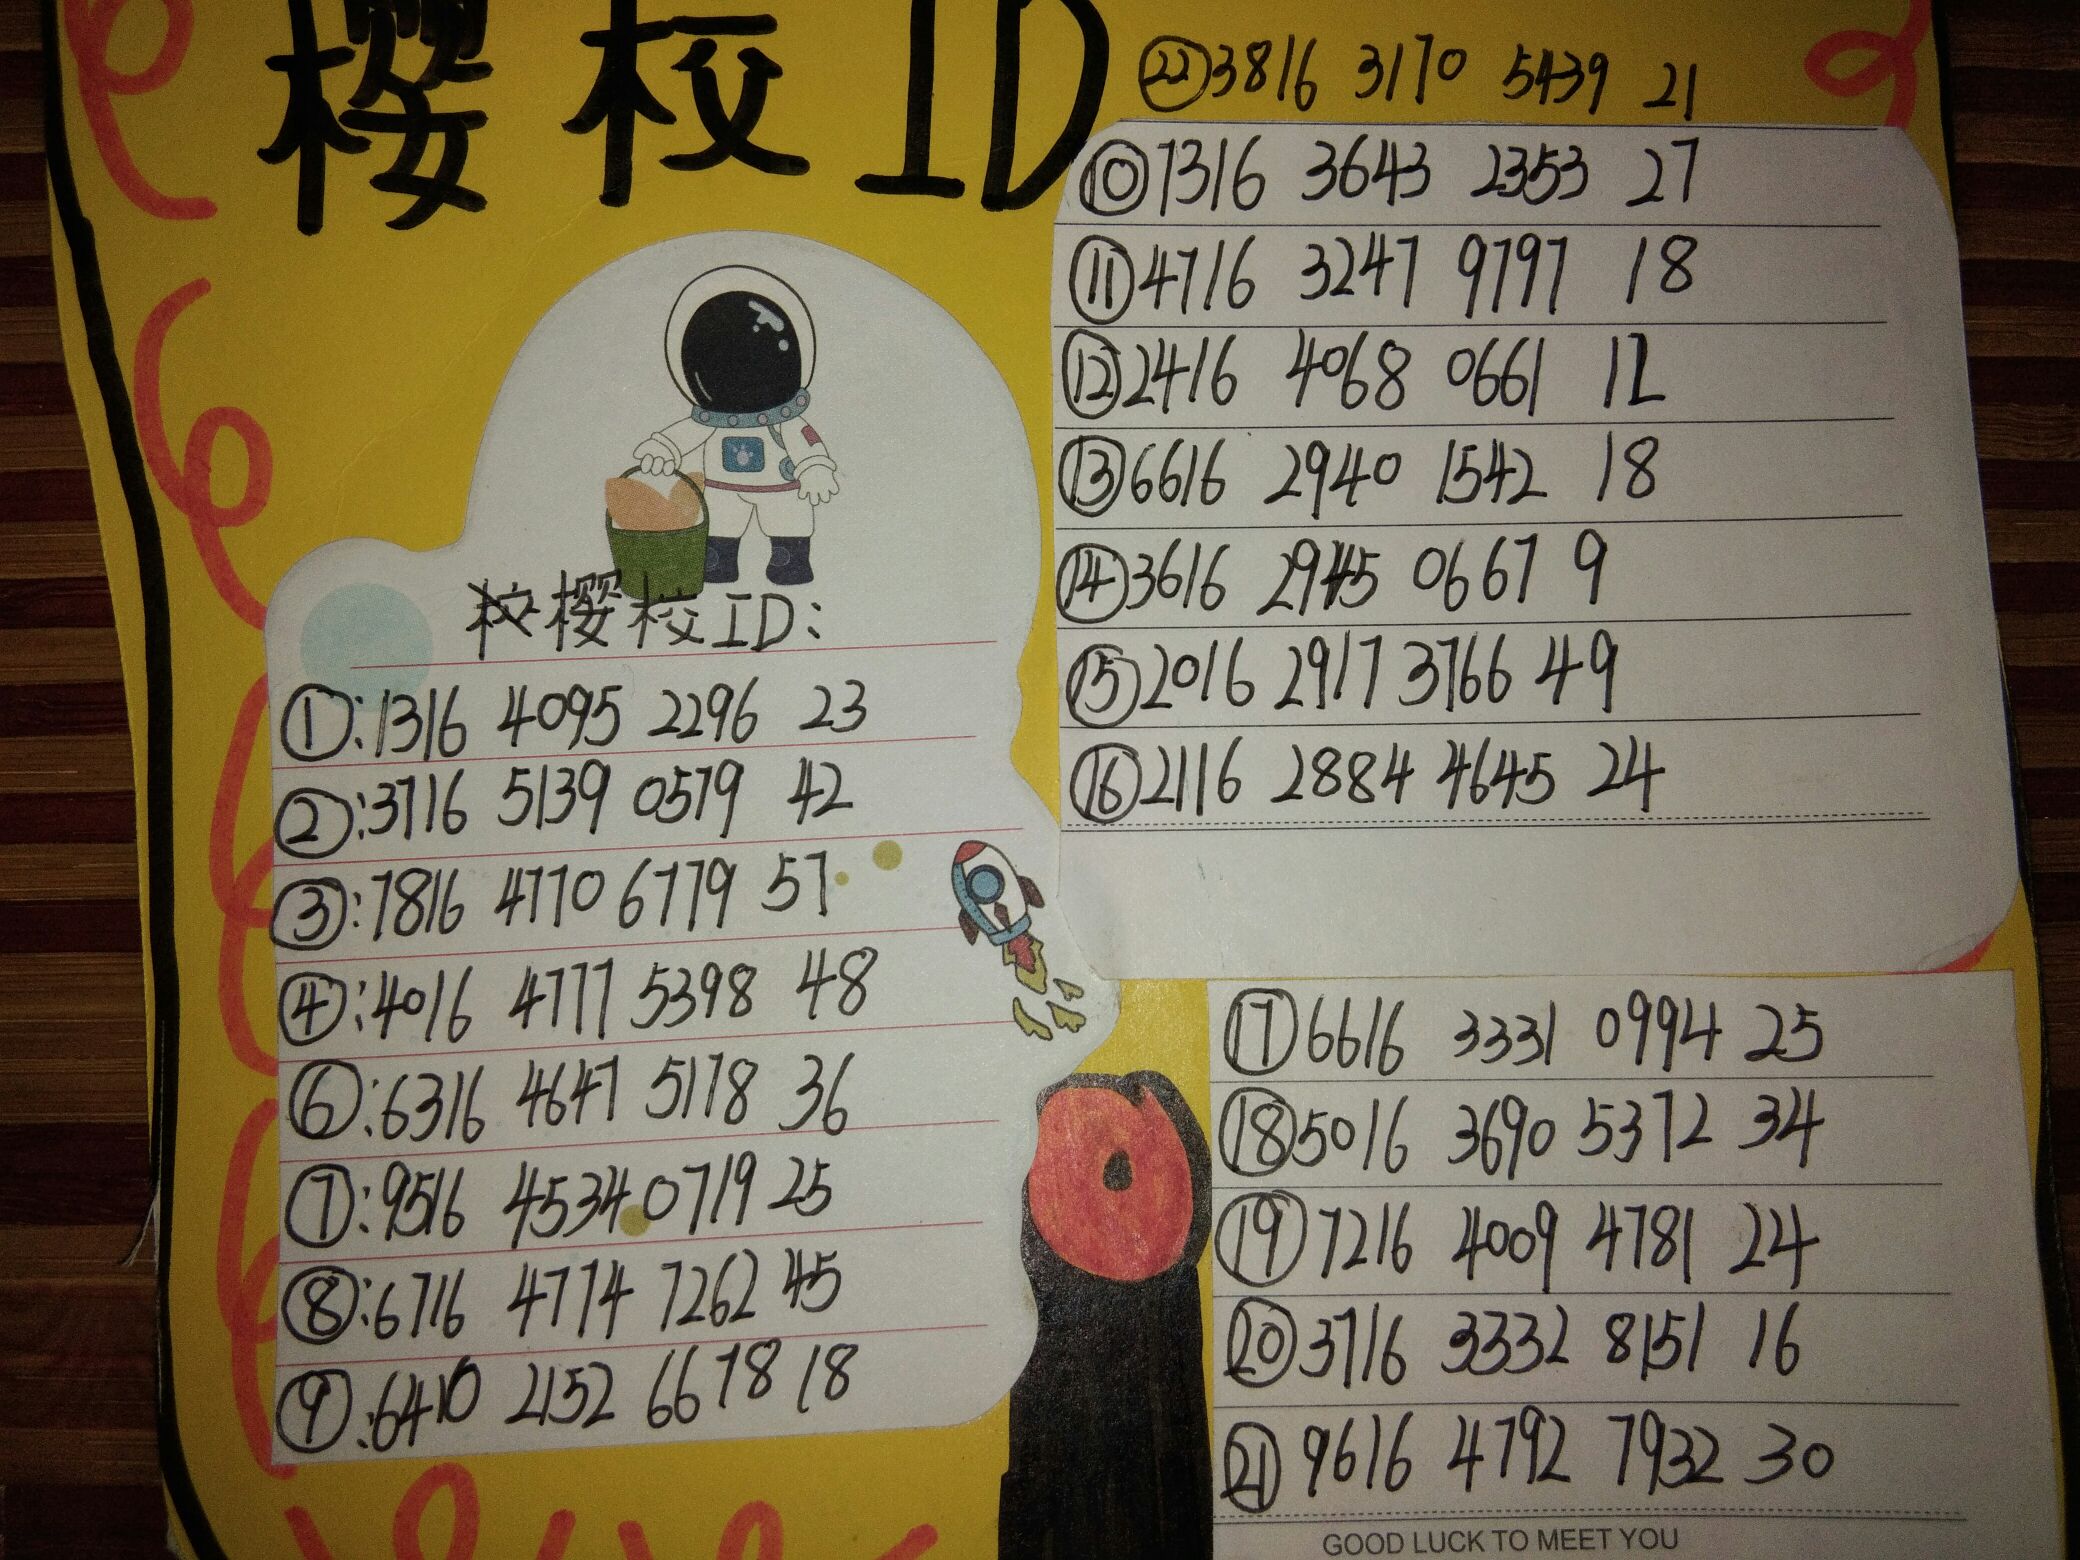 樱校ID
樱校ID:
①:1316 4095 2296 23
②:3716 5139 0579 42
③:7816 4770 6779 57
④:4016 4777 5398 48
⑥:6316 4647 5178 36
⑦:9516 4534 0719 25
⑧:6716 4774 7262 45
⑨:6410 2152 6678 18
㉒3816 3170 5439 21
⑩7316 3643 2353 27
⑪4716 3247 9797 18
⑫2416 4068 0661 12
⑬6616 2940 1542 18
⑭3616 2945 0667 9
⑮2016 2917 3766 49
⑯2116 2884 4645 24
⑰6616 3331 0994 25
⑱5016 3690 5372 34
⑲7216 4009 4781 24
⑳3716 3332 8151 16
㉑9616 4792 7932 30
GOOD LUCK TO MEET YOU